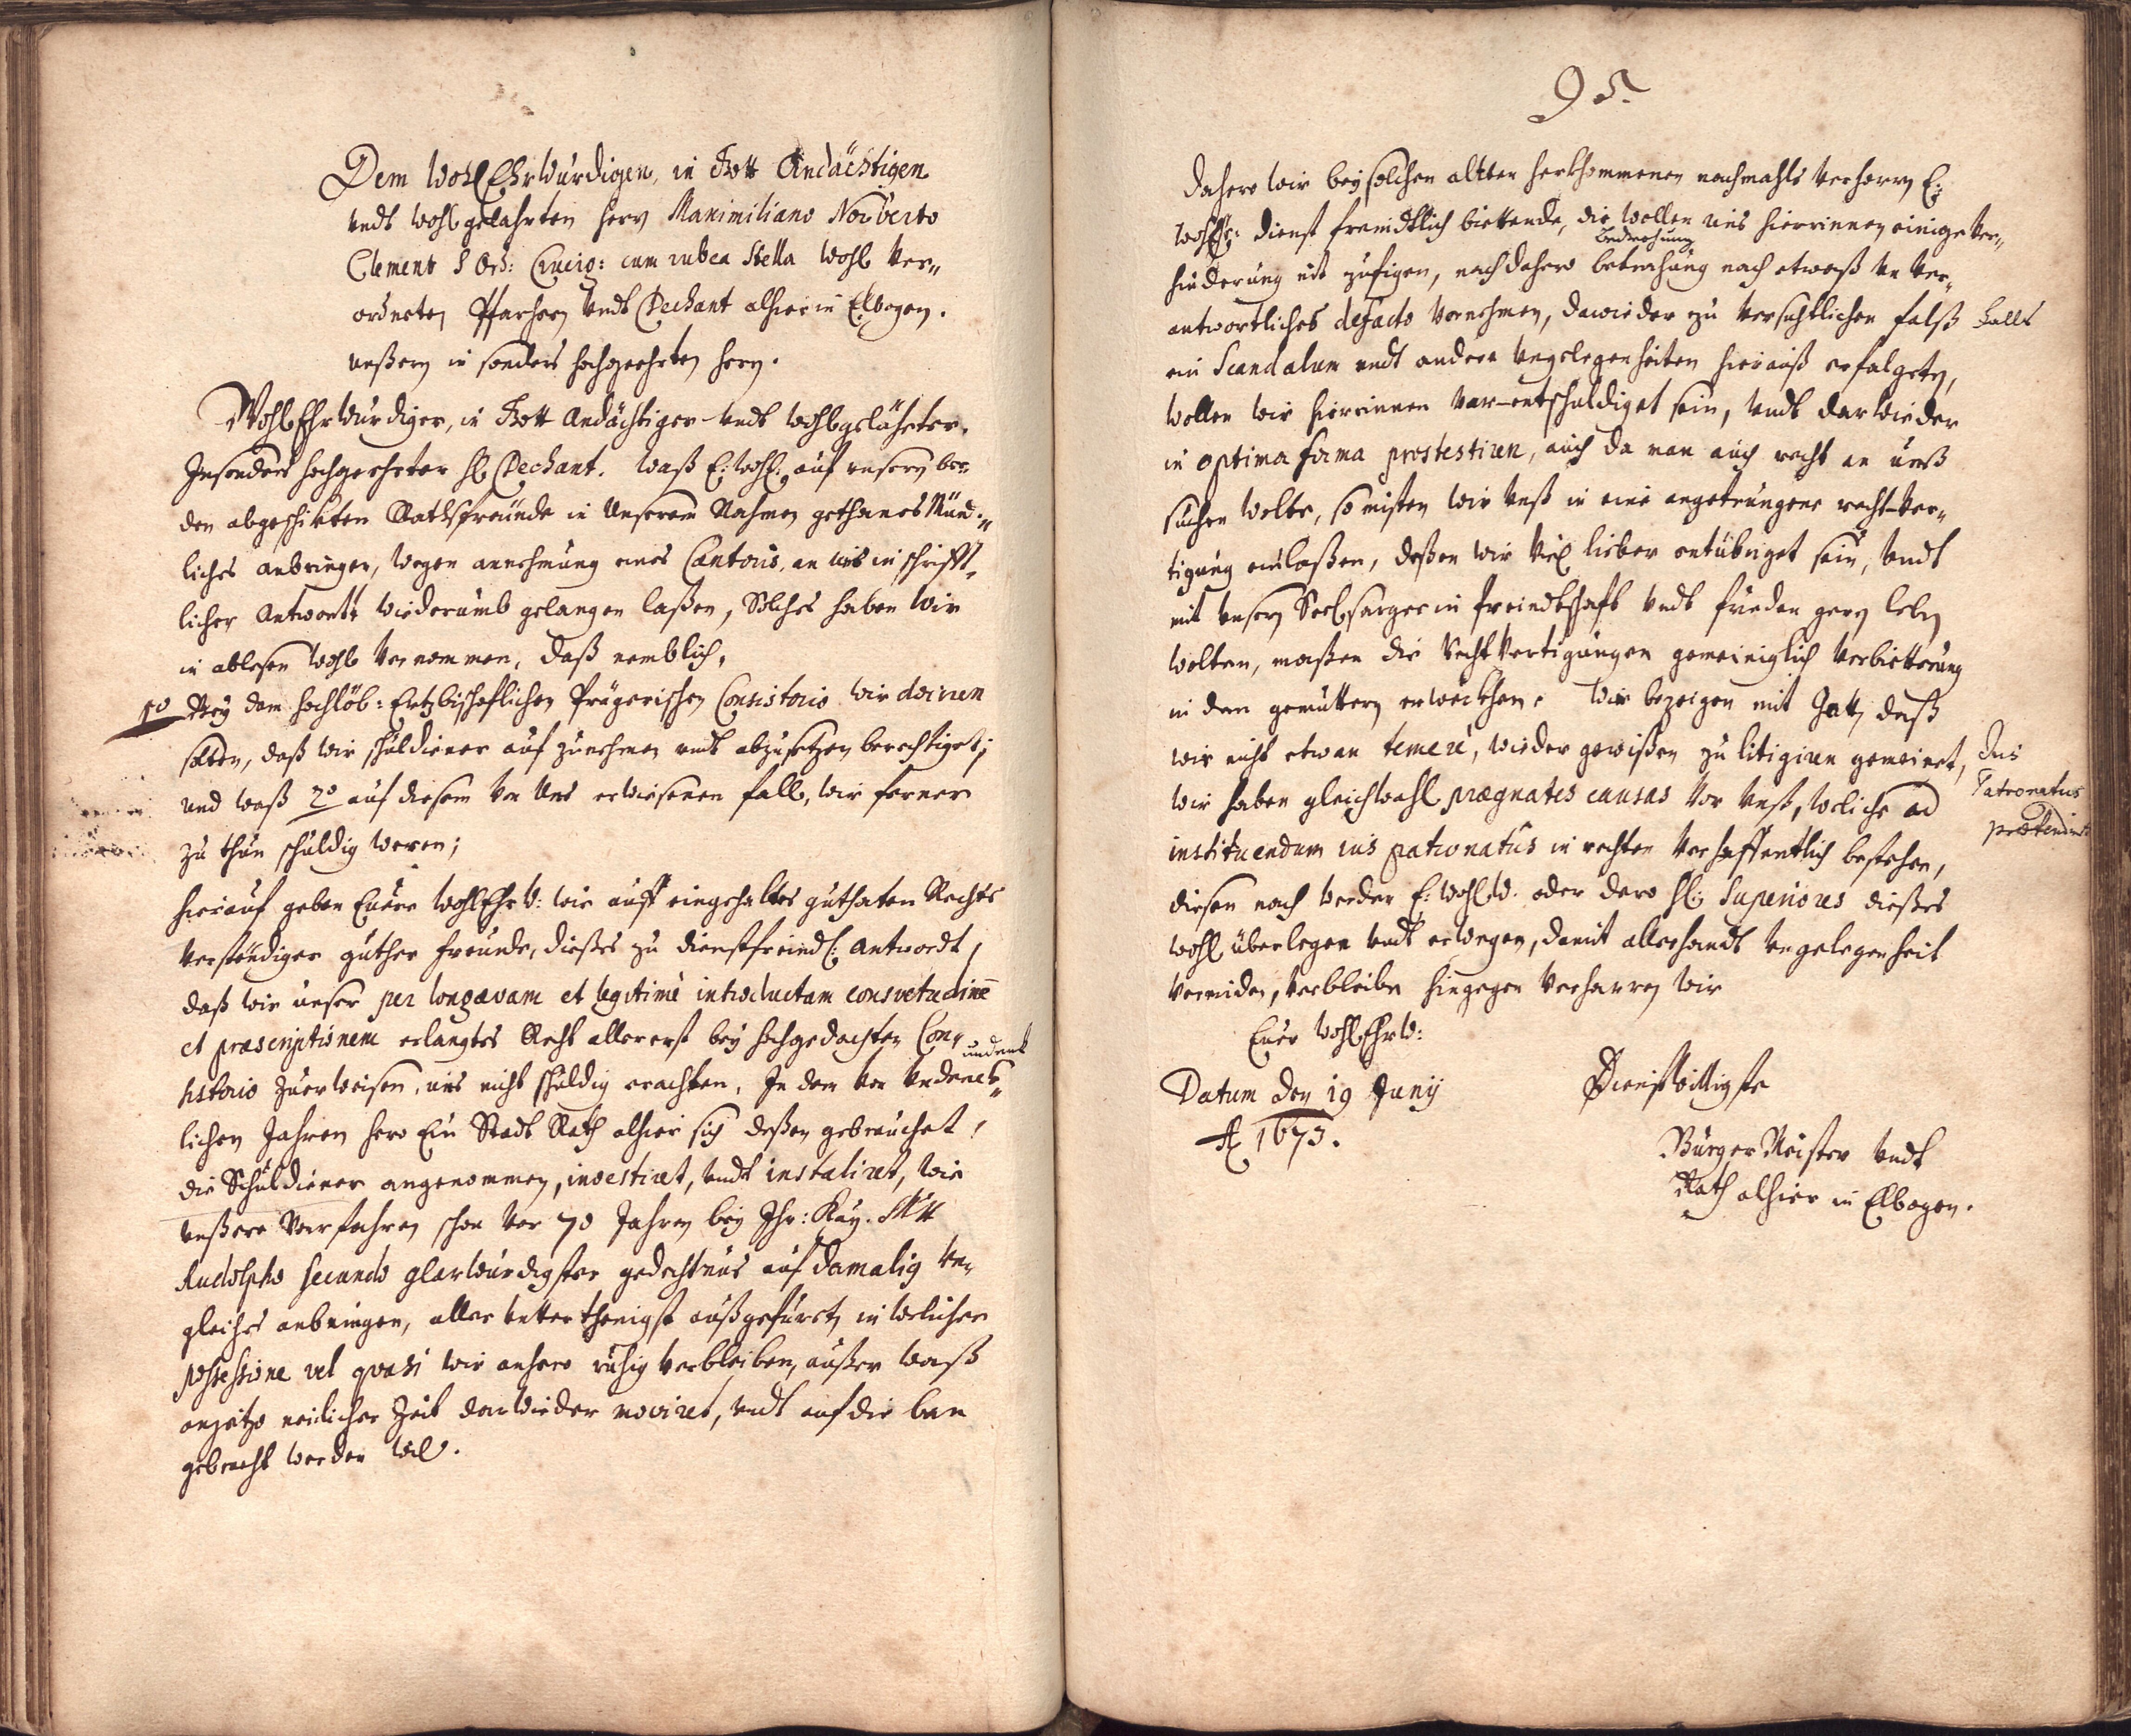 Dem WohlEhrWürdigen, in Gott Andächtigen
undt wohlgelahrten Herrn Maximiliano Norberto
Clement S Ord: Crucig: cum rubea Stella wohl Ver-
ordneten Pfarherrn undt Dechant alhier in Elbogen.
unßern in sonders hochgeehrten Herrn.
WohlEhrWürdiger, in Gott Andächtiger undt wohlgelährter.
Insonders hochgeehrter H Dechant. Waß E: WohlE: auf unsern bee-
den abgeschikten Rathsfreünde in Unserem Nahmen gethanes Münd-
liches anbringen, wegen annehmung eines Cantoris, an uns in schrifft-
licher Antwortt wiederumb gelangen laßen, Solches haben wir
in ablesen wohl vernommen, daß nemblich,
1o Bey dem hochlöb: Ertzbischoflichen Pragerischen Consistorio wir doiren
solten, daß wir schuldiener auf zunehmen undt abzusetzen berechtiget;
und waß 2o auf diesem von Uns erwiesenen fall, wir ferner
zu thun schuldig weren;
hierauf geben Euer WohlEhrW: wir auff eingehaltes guthaten Rechts
verständiger guther freunde, dießes zu dienstfreindl: Antwordt,
daß wir unser per longævam et legitimè introductam consvetudinē
et præscriptionem erlangtes Recht allererst bey hochgedachten Con-
sistorio zuerweisen, uns nicht schuldig erachten, In dem von undenck- undenk
lichen Jahren hero Ein Stadt Rath alhier sich deßen gebrauchet,
die Schuldiener angenommen, investiret, undt instaliret, wie
unßere Vorfahren schon vor 70 Jahren bey Ihr: Kay. Mtt
Rudolpho secundo glorwürdigster gedechtnus auf damalig un-
gleiches anbringen, aller unterthenigst außgefürt, in welicher
possessione vel quasi wir anhero ruhig verbleiben, außer waß
anjetzo neilicher Zeit darwieder moviret, undt auf die ban
gebracht werden wil.
95.
Dahero wir bey solchen altten herkhommenen nachmahls verharren E:
WohlE: dienst freindtlich bittende, die wollen uns hierinnen einige Ver-
hinderung nit zufigen, nach dahero betrohung noch etwaß un ver- Bedrohung
antwortliches defacto vornehmen, dawieder zu versichtlichen falß falls
ein Scandalum undt andere ungelegenheiten hierauß erfolgeten,
wollen wir hierinnen vor-entschuldiget sein, undt darwieder
in optima forma prostestiren, auch da man auch recht an unß
suchen wolte, so misten wir unß in eine angetrungene recht-ver-
tigung einlaßen, deßen wir viel lieber entübriget sein, undt
mit unsern Seelsorger in freindtschaft undt frieden gern leben
wolten, maßen die Rechtvertigungen gemeiniglich verbitterung
in den gemüttern erweckhen. Wir bezeigen mit Gott, daß
wir nicht etwan temerè, wieder gewißen zu litigiren gemeinet,
wir haben gleichwohl prægnates causas vor unß, weliche ad
instituendum ius patronatûs in rechten verhoffentlich bestehen,
Jus
Patronatus
prætendirt
diesen nach werden E: WohlW. oder dero H: Superiores dießes
wohl überlegen undt erwegen, damit allerhandt ungelegenheit
vermiden, verbleibe hingegen verharren wir
Euer WohlEhrW:
Datum den 19 Junÿ
A 1673.
Dienstwilligste
BürgerMeister undt
Rath alhier in Elbogen.